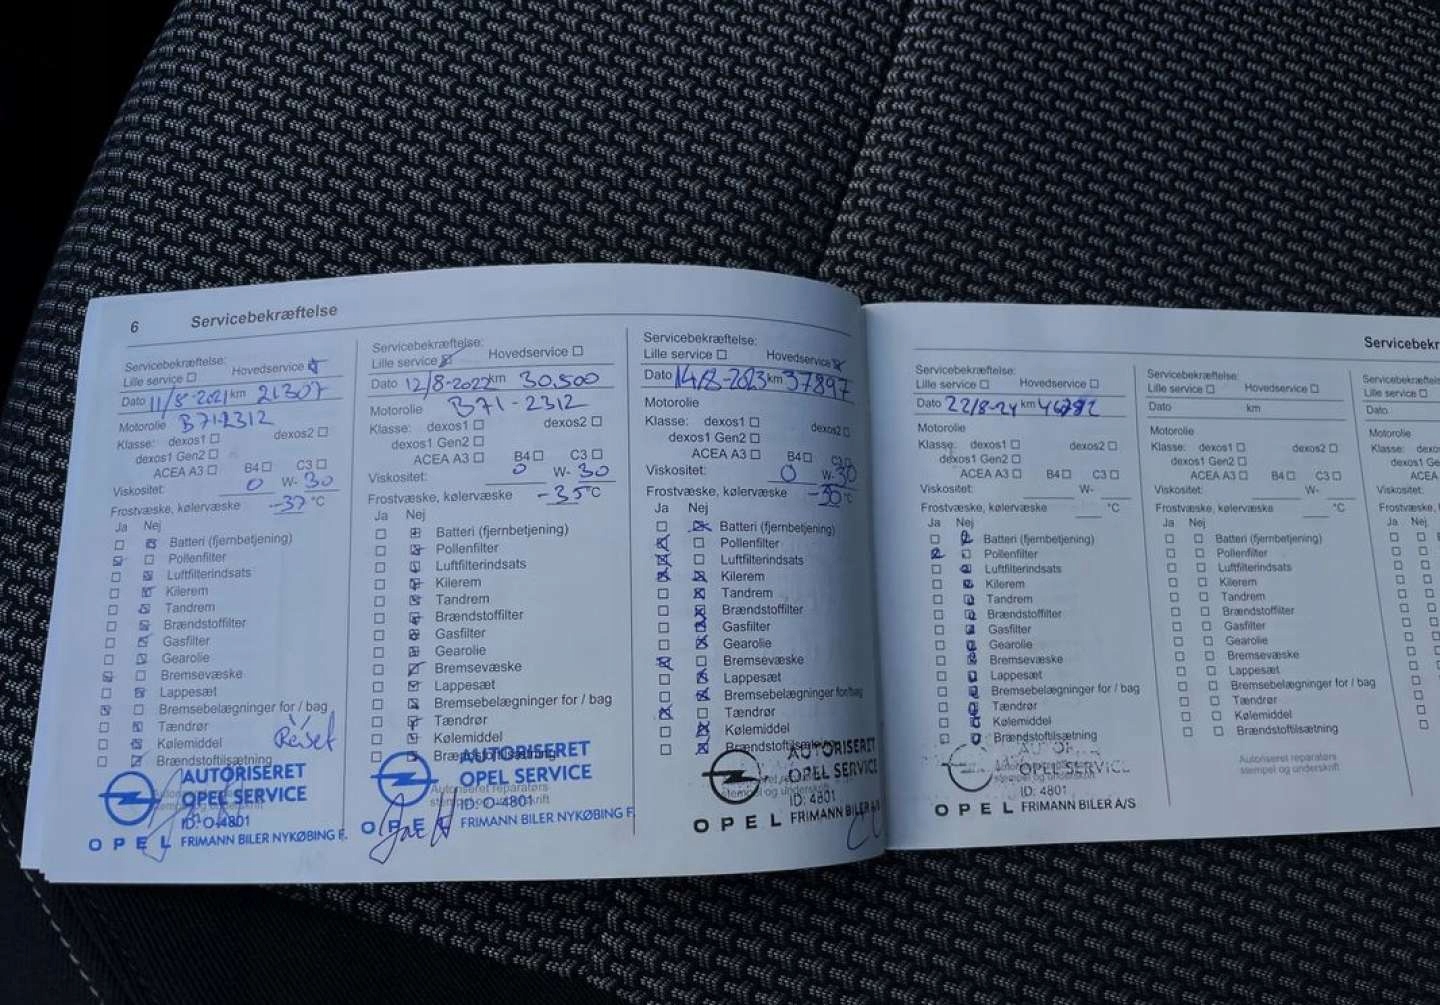 6 Servicebekræftelse
Servicebekræftelse:
Lille service Hovedservice
Dato 11/8-2021 km 21307
Motorolie B71-2312
Klasse: dexos1 dexos2
dexos1 Gen2
ACEA A3 B4 C3
Viskositet: 0 W- 30
Frostvæske, kølervæske -37 °C
Ja Nej
Batteri (fjernbetjening)
Pollenfilter
Luftfilterindsats
Kilerem
Tandrem
Brændstoffilter
Gasfilter
Gearolie
Bremsevæske
Lappesæt
Bremsebelægninger for / bag
Tændrør
Kølemiddel
Brændstoftilsætning
AUTORISERET
OPEL SERVICE
ID: O-4801
OPEL FRIMANN BILER NYKØBING F.
Servicebekræftelse:
Lille service Hovedservice
Dato 12/8-2022 km 30.500
Motorolie B71-2312
Klasse: dexos1 dexos2
dexos1 Gen2
ACEA A3 B4 C3
Viskositet: 0 W- 30
Frostvæske, kølervæske -35 °C
Ja Nej
Batteri (fjernbetjening)
Pollenfilter
Luftfilterindsats
Kilerem
Tandrem
Brændstoffilter
Gasfilter
Gearolie
Bremsevæske
Lappesæt
Bremsebelægninger for / bag
Tændrør
Kølemiddel
Brændstoftilsætning
AUTORISERET
OPEL SERVICE
Autoriseret reparatørs
stempel og underskrift
ID: O-4801
OPEL FRIMANN BILER NYKØBING F.
Servicebekræftelse:
Lille service Hovedservice
Dato 14/8-2023 km 37897
Motorolie
Klasse: dexos1 dexos2
dexos1 Gen2
ACEA A3 B4 C3
Viskositet: 0 W-30
Frostvæske, kølervæske -30 °C
Ja Nej
Batteri (fjernbetjening)
Pollenfilter
Luftfilterindsats
Kilerem
Tandrem
Brændstoffilter
Gasfilter
Gearolie
Bremsevæske
Lappesæt
Bremsebelægninger for/bag
Tændrør
Kølemiddel
Brændstoftilsætning
AUTORISERET
OPEL SERVICE
ID: 4801
OPEL FRIMANN BILER A/S
Servicebekr
Servicebekræftelse:
Lille service Hovedservice
Dato 22/8-24 km
Motorolie
Klasse: dexos1 dexos2
dexos1 Gen2
ACEA A3 B4 C3
Viskositet: W-
Frostvæske, kølervæske °C
Ja Nej
Batteri (fjernbetjening)
Pollenfilter
Luftfilterindsats
Kilerem
Tandrem
Brændstoffilter
Gasfilter
Gearolie
Bremsevæske
Lappesæt
Bremsebelægninger for / bag
Tændrør
Kølemiddel
Brændstoftilsætning
OPEL SERVICE
ID: 4801
OPEL FRIMANN BILER A/S
Servicebekræftelse:
Lille service Hovedservice
Dato km
Motorolie
Klasse: dexos1 dexos2
dexos1 Gen2
ACEA A3 B4 C3
Viskositet: W-
Frostvæske, kølervæske °C
Ja Nej
Batteri (fjernbetjening)
Pollenfilter
Luftfilterindsats
Kilerem
Tandrem
Brændstoffilter
Gasfilter
Gearolie
Bremsevæske
Lappesæt
Bremsebelægninger for / bag
Tændrør
Kølemiddel
Brændstoftilsætning
Autoriseret reparatørs
stempel og underskrift
Servicebekræftels
Lille service
Dato
Motorolie
Klasse: dexos
dexos1 Ge
ACEA
Viskositet:
Ja Nej